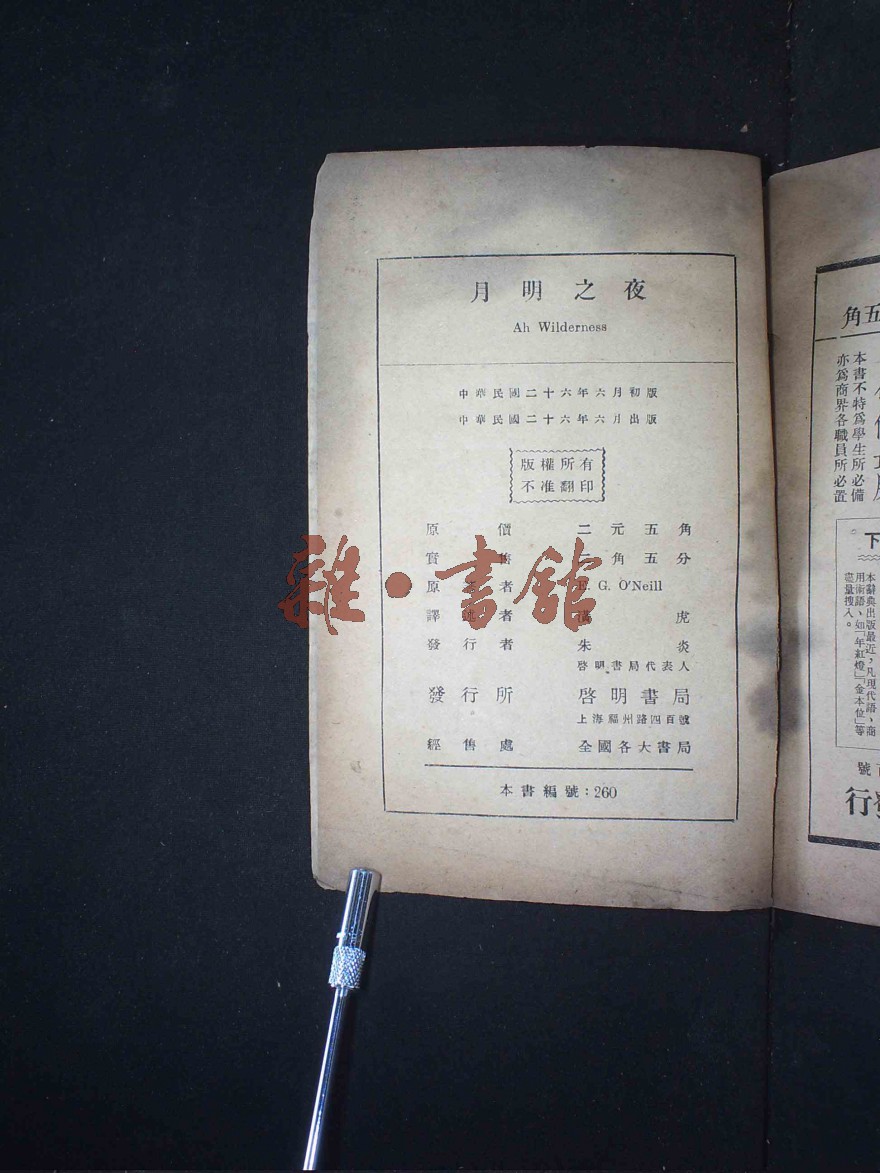 月明之夜
Ah Wilderness
中華民國二十六年六月初版
中華民國二十六年六月出版
版權所有
不准翻印
原價 二元五角
實售 角五分
原著者 E. G. O'Neill
譯述者 虎
發行者 朱炎
啓明書局代表人
發行所 啓明書局
上海福州路四百號
經售處 全國各大書局
本書編號：260
雜·書館
五角
本書不特爲學生所必備
亦爲商界各職員所必置
下
本辭典出版最近，凡現代語、商
用術語、如「年紅燈」「金本位」等
蒐量搜入。
號
行發